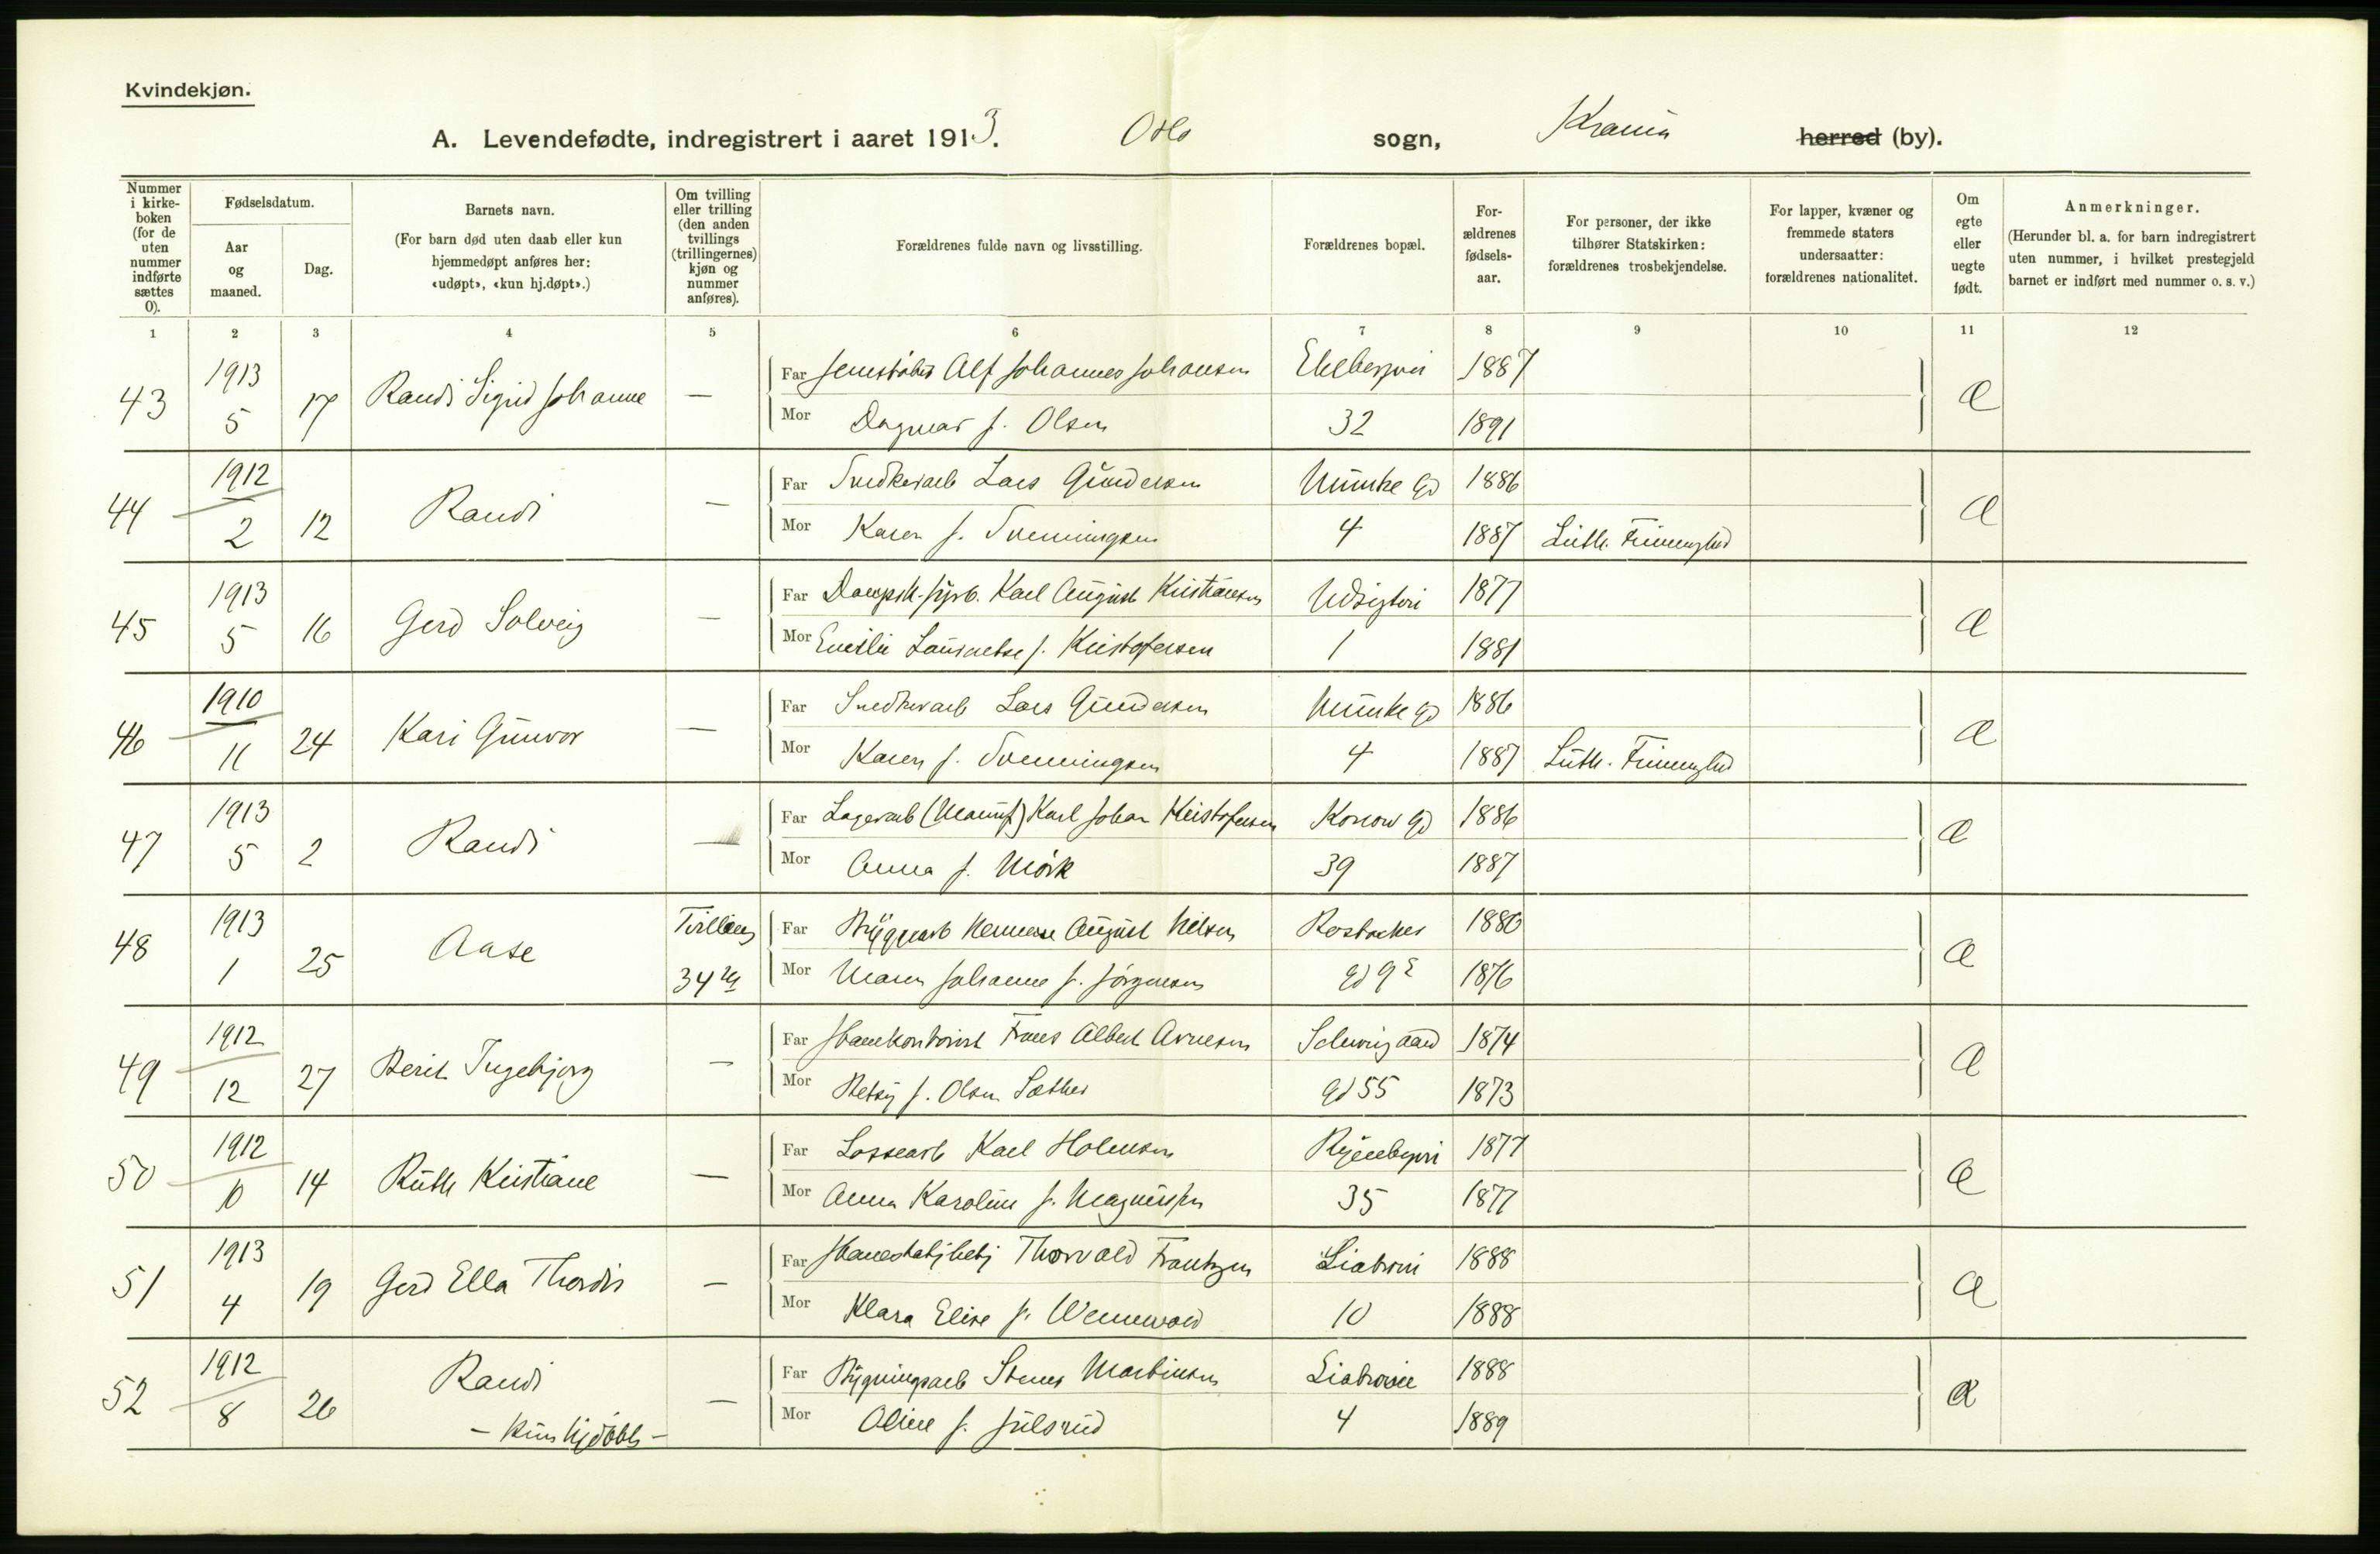 Kvindekjøn.
A. Levendefødte, indregistrert i aaret 1913. Oslo sogn, Krania herred (by).
Nummer i kirkeboken (for de uten nummer indførte sættes 0).
Fødselsdatum.
Aar og maaned.
Dag.
Barnets navn.
(For barn død uten daab eller kun hjemmedøpt anføres her: «udøpt», «kun hj.døpt».)
Om tvilling eller trilling (den anden tvillings (trillingernes) kjøn og nummer anføres).
Forældrenes fulde navn og livsstilling.
Forældrenes bopæl.
Forældrenes fødselsaar.
For personer, der ikke tilhører Statskirken: forældrenes trosbekjendelse.
For lapper, kvæner og fremmede staters undersaatter: forældrenes nationalitet.
Om egte eller uegte født.
Anmerkninger.
(Herunder bl. a. for barn indregistrert uten nummer, i hvilket prestegjeld barnet er indført med nummer o. s. v.)
1 2 3 4 5 6 7 8 9 10 11 12
43 1913 5 17 Randi Sigrid Johanne —
Far Alf Johannes Johansen 1887
Mor Dagmar f. Olsen 32 1891
44 1912 2 12 Randi —
Far Snedkerarb Lars Gundersen Munke Gd 1886
Mor Karen f. Svenningsen 4 1887 Luth. Frimenghed
45 1913 5 16 Gerd Solveig —
Far Karl August Kristiansen 1877
Mor Emilie f. Kristofersen 1 1881
46 1910 11 24 Kari Gunvor —
Far Snedkerarb Lars Gundersen Munke Gd 1886
Mor Karen f. Svenningsen 4 1887 Luth. Frimenghed
47 1913 5 2 Randi —
Far Lagerarb (Manuf) Karl Johan Kristofersen Konow Gd 1886
Mor Anna f. Mörk 39 1887
48 1913 1 25 Aase Tvilling
Far Bryggearb Herman August Nilsen Rostocker 1880
34 Mor Maren Johanne f. Jörgensen Gd 9 1876
49 1912 12 27 Berit Ingebjorg —
Far Frans Albert Arnesen Schweigaard 1874
Mor Betsy f. Olsen Sæther Gd 55 1873
50 1912 10 14 Ruth Kristiane —
Far Lossearb Karl Holmsen 1877
Mor Anna Karoline f. Magnussen 35 1877
51 1913 4 19 Gerd Ella Thordis —
Far Thorvald Frantzen Liabrovei 1888
Mor Klara Elise f. Wennevold 10 1888
52 1912 8 26 Randi —
Far Bygningsarb Martinsen Liabrovei 1888
— kun hjdöbt —
Mor Oline f. Julsrud 4 1889